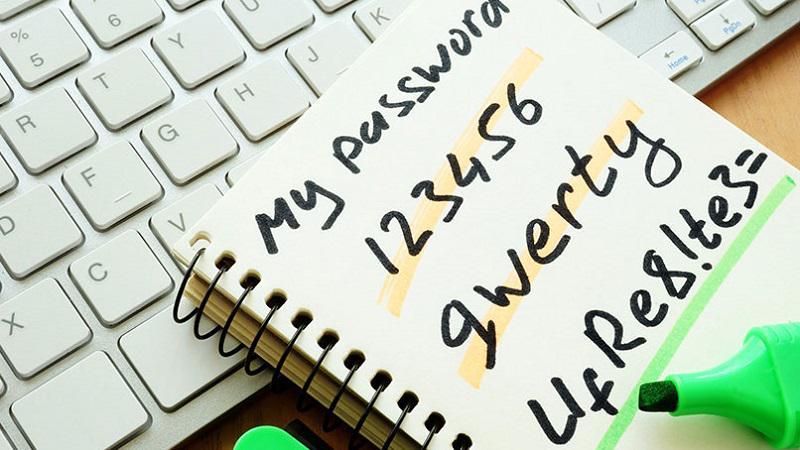 My password
123456
qwerty
UfRe8!te3=
% 5
^ 6
Y
U
K
R
T
H
J
F
G
D
C
V
X
Home
PgDn
PgUp